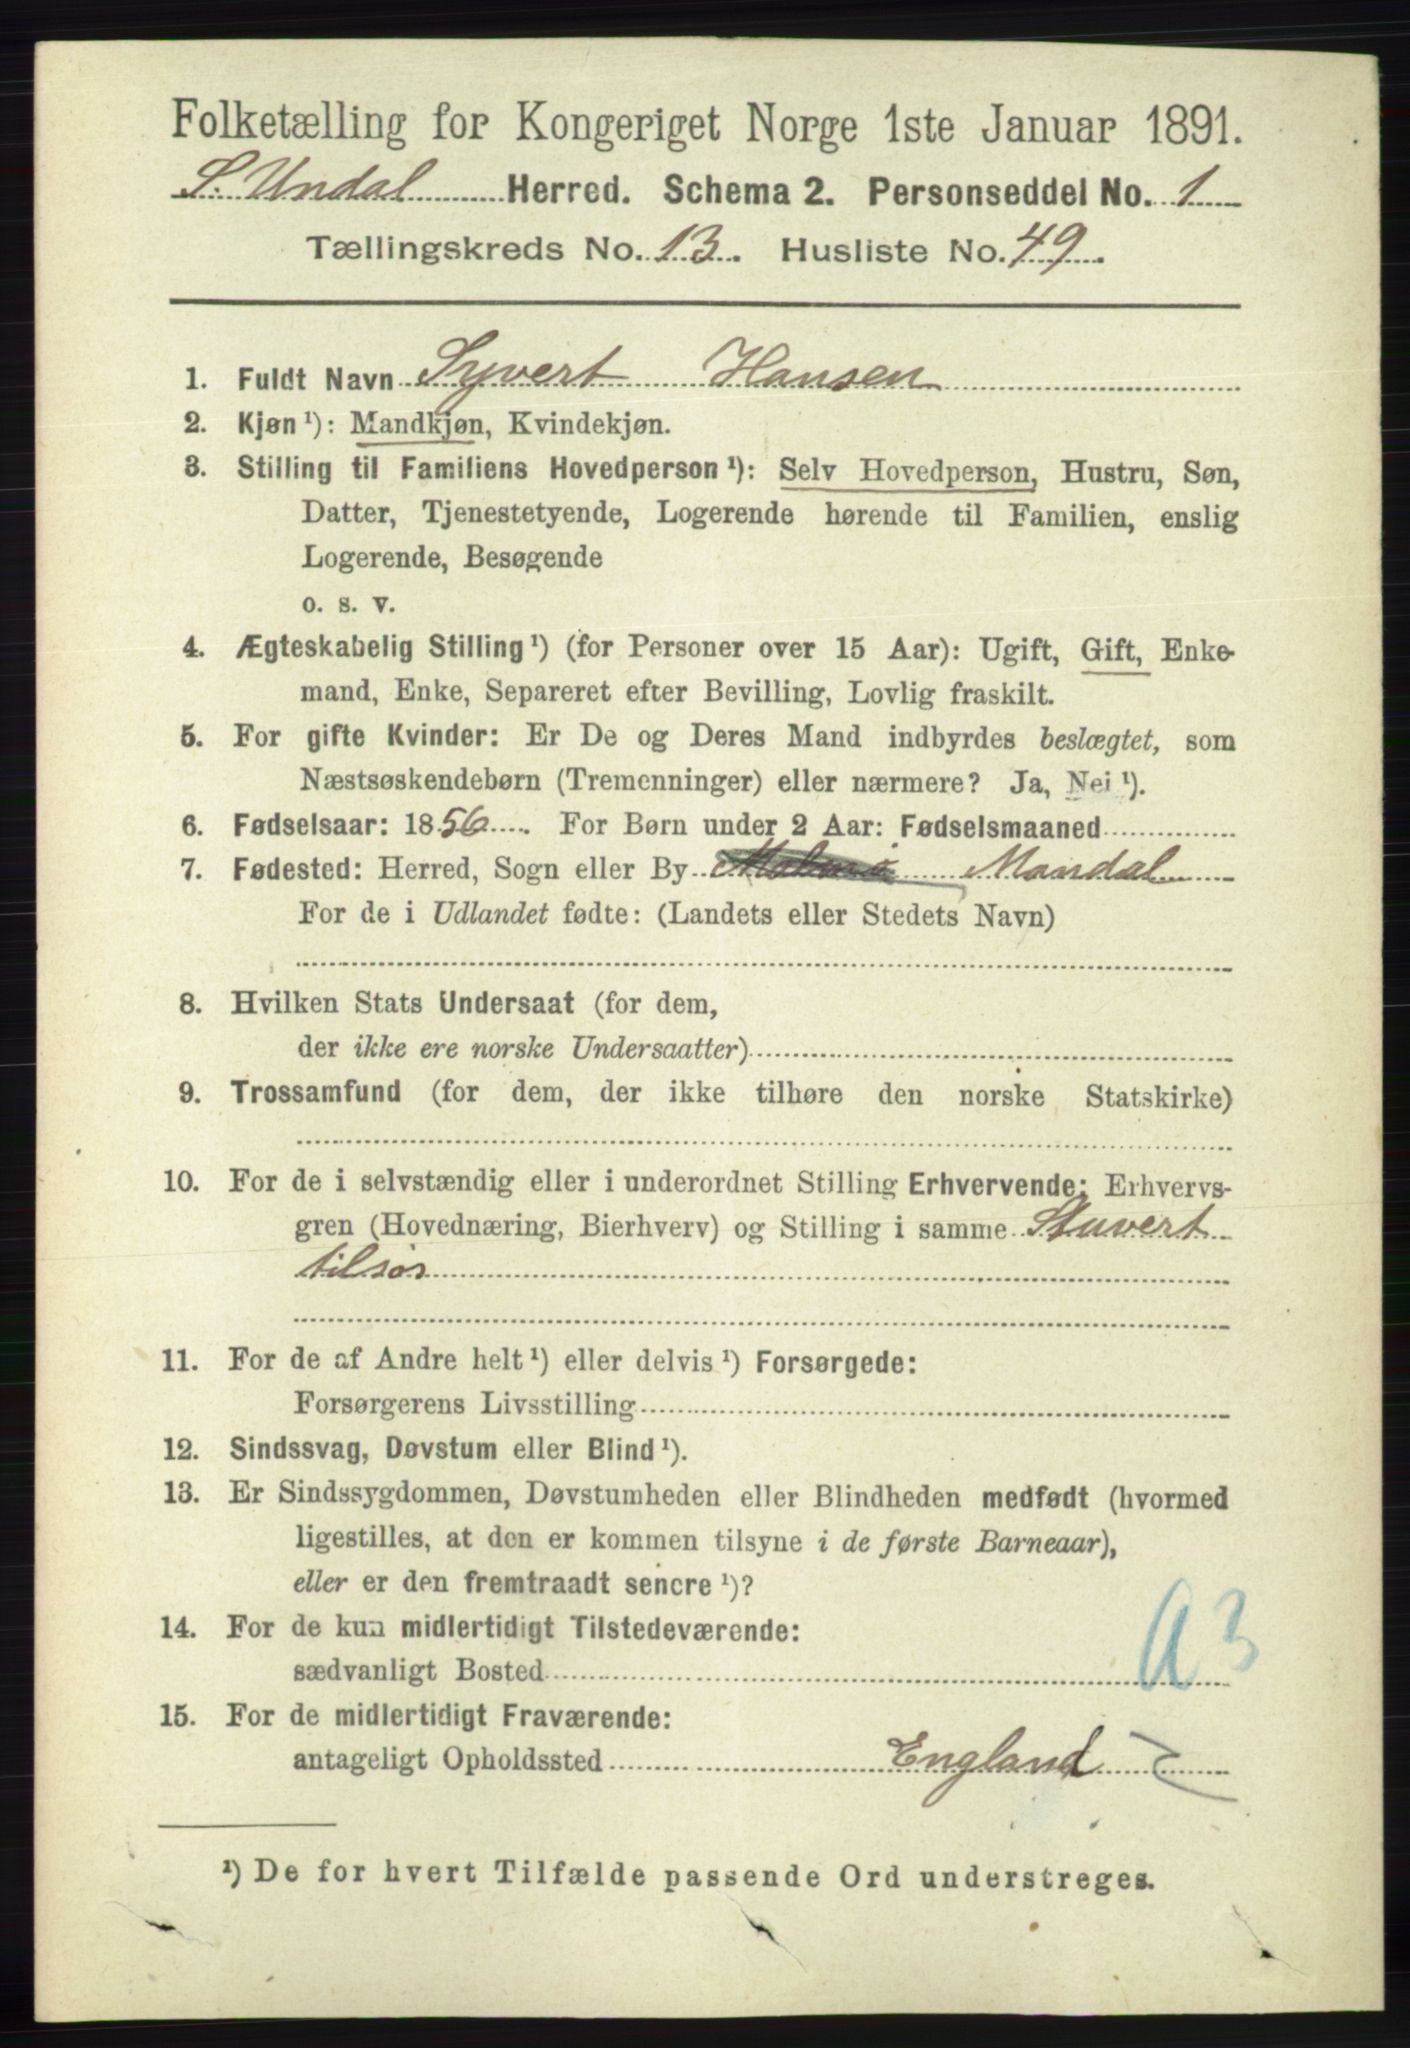 Folketælling for Kongeriget Norge 1ste Januar 1891.
S. Undal Herred. Schema 2. Personseddel No. 1
Tællingskreds No. 13. Husliste No. 49.
1. Fuldt Navn Syvert Hansen
2. Kjøn ¹): Mandkjøn, Kvindekjøn.
3. Stilling til Familiens Hovedperson ¹): Selv Hovedperson, Hustru, Søn,
Datter, Tjenestetyende, Logerende hørende til Familien, enslig
Logerende, Besøgende
o. s. v.
4. Ægteskabelig Stilling ¹) (for Personer over 15 Aar): Ugift, Gift, Enke-
mand, Enke, Separeret efter Bevilling, Lovlig fraskilt.
5. For gifte Kvinder: Er De og Deres Mand indbyrdes beslægtet, som
Næstsøskendebørn (Tremenninger) eller nærmere? Ja, Nei ¹).
6. Fødselsaar: 1856. For Børn under 2 Aar: Fødselsmaaned
7. Fødested: Herred, Sogn eller By Mandal
For de i Udlandet fødte: (Landets eller Stedets Navn)
8. Hvilken Stats Undersaat (for dem,
der ikke ere norske Undersaatter)
9. Trossamfund (for dem, der ikke tilhøre den norske Statskirke)
10. For de i selvstændig eller i underordnet Stilling Erhvervende: Erhvervs-
gren (Hovednæring, Bierhverv) og Stilling i samme Stuvert
tilsøs
11. For de af Andre helt ¹) eller delvis ¹) Forsørgede:
Forsørgerens Livsstilling
12. Sindssvag, Døvstum eller Blind ¹).
13. Er Sindssygdommen, Døvstumheden eller Blindheden medfødt (hvormed
ligestilles, at den er kommen tilsyne i de første Barneaar),
eller er den fremtraadt senere ¹)?
14. For de kun midlertidigt Tilstedeværende:
sædvanligt Bosted
a3
15. For de midlertidigt Fraværende:
antageligt Opholdssted England
¹) De for hvert Tilfælde passende Ord understreges.